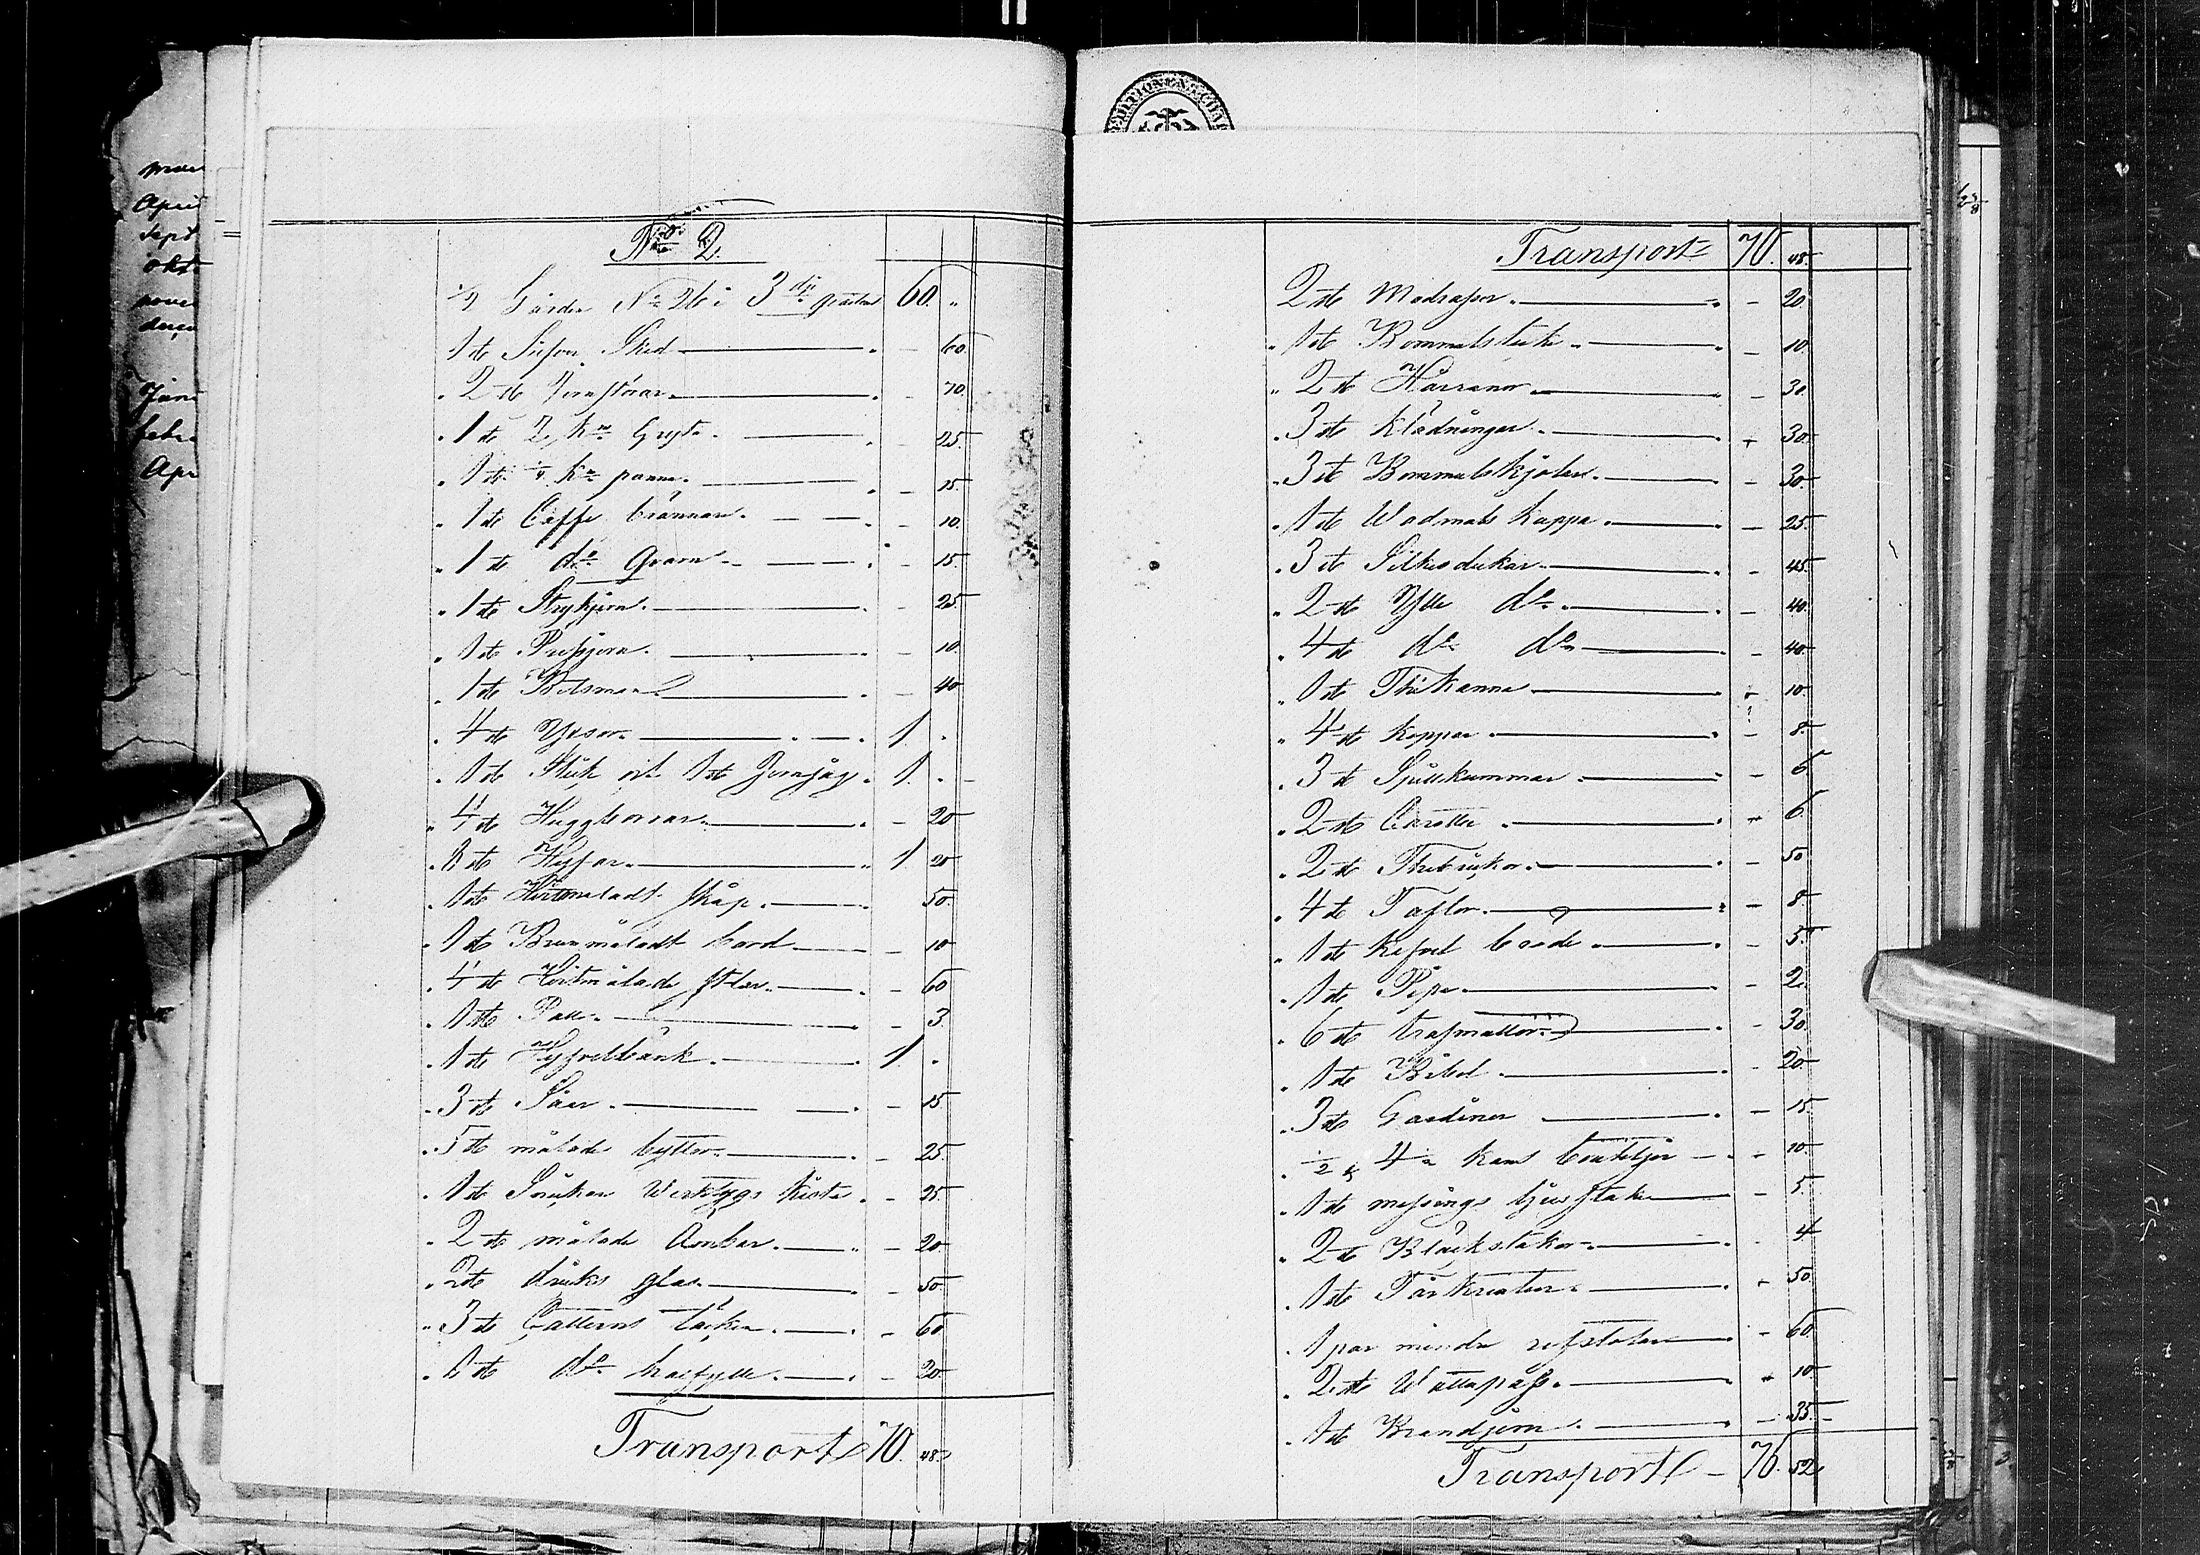 No 2.
1/2 Gården No 26 i 3dje 60. "
1 st Skid 60.
2 st 70.
1 st 2 kns Gryta 25.
1 st 1/4 kns panna 15.
1 st Caffe brännare 10.
1 st do Qvarn 15.
1 st Strykjern 25.
1 st Pressjern 10.
1 st Betsman 40
4 st Yxor 1.
1 st Stick och 1 st Jernsåg 1.
4 st Huggborrar 20
st Hyflar 1 20
1 st Hvitmåladt skåp 50.
1 st Brunmåladt bord 10
4 st Hvitmålade stolar 60
1 st Pall 3
1 st Hyfvelbänk 1.
3 st Såar 15
5 st målade byttor 25
1 st Snickare Werktygs kista 25
2 st målade Ämbar 20
2 st dricks glas 50
3 st Catterns täcken 60
1 st do halffylle 20
Transport 70. 48.
Transport 70. 48.
2 st Madrasser 20
1 st Bommulstäcke 10
2 st 30.
3 st Klädningar 30
3 st Bommulskjolar 30
1 st Wadmals kappa 25
3 st Silkesdukar 45
2 st Ylle do 40
4 st do do 40
1 st Thekanna 10
4 st koppar 8
3 st Spillkummar 6
2 st Caraffer 6
2 st Thebrickor 50
4 st Taflor 8
1 st kafvel bräde 5
1 st Pipa 2
6 st trasmattor 30
1 st Bibel 20
3 st Gardiner 15
1/2 & 4 kans bouteljer 10
1 st messings ljusstake 5
2 st Bläckstakar 4
1 st 50
1 par mindre 60
2 st Wattupass 10
1 st Brandjern 35
Transport 76. 52